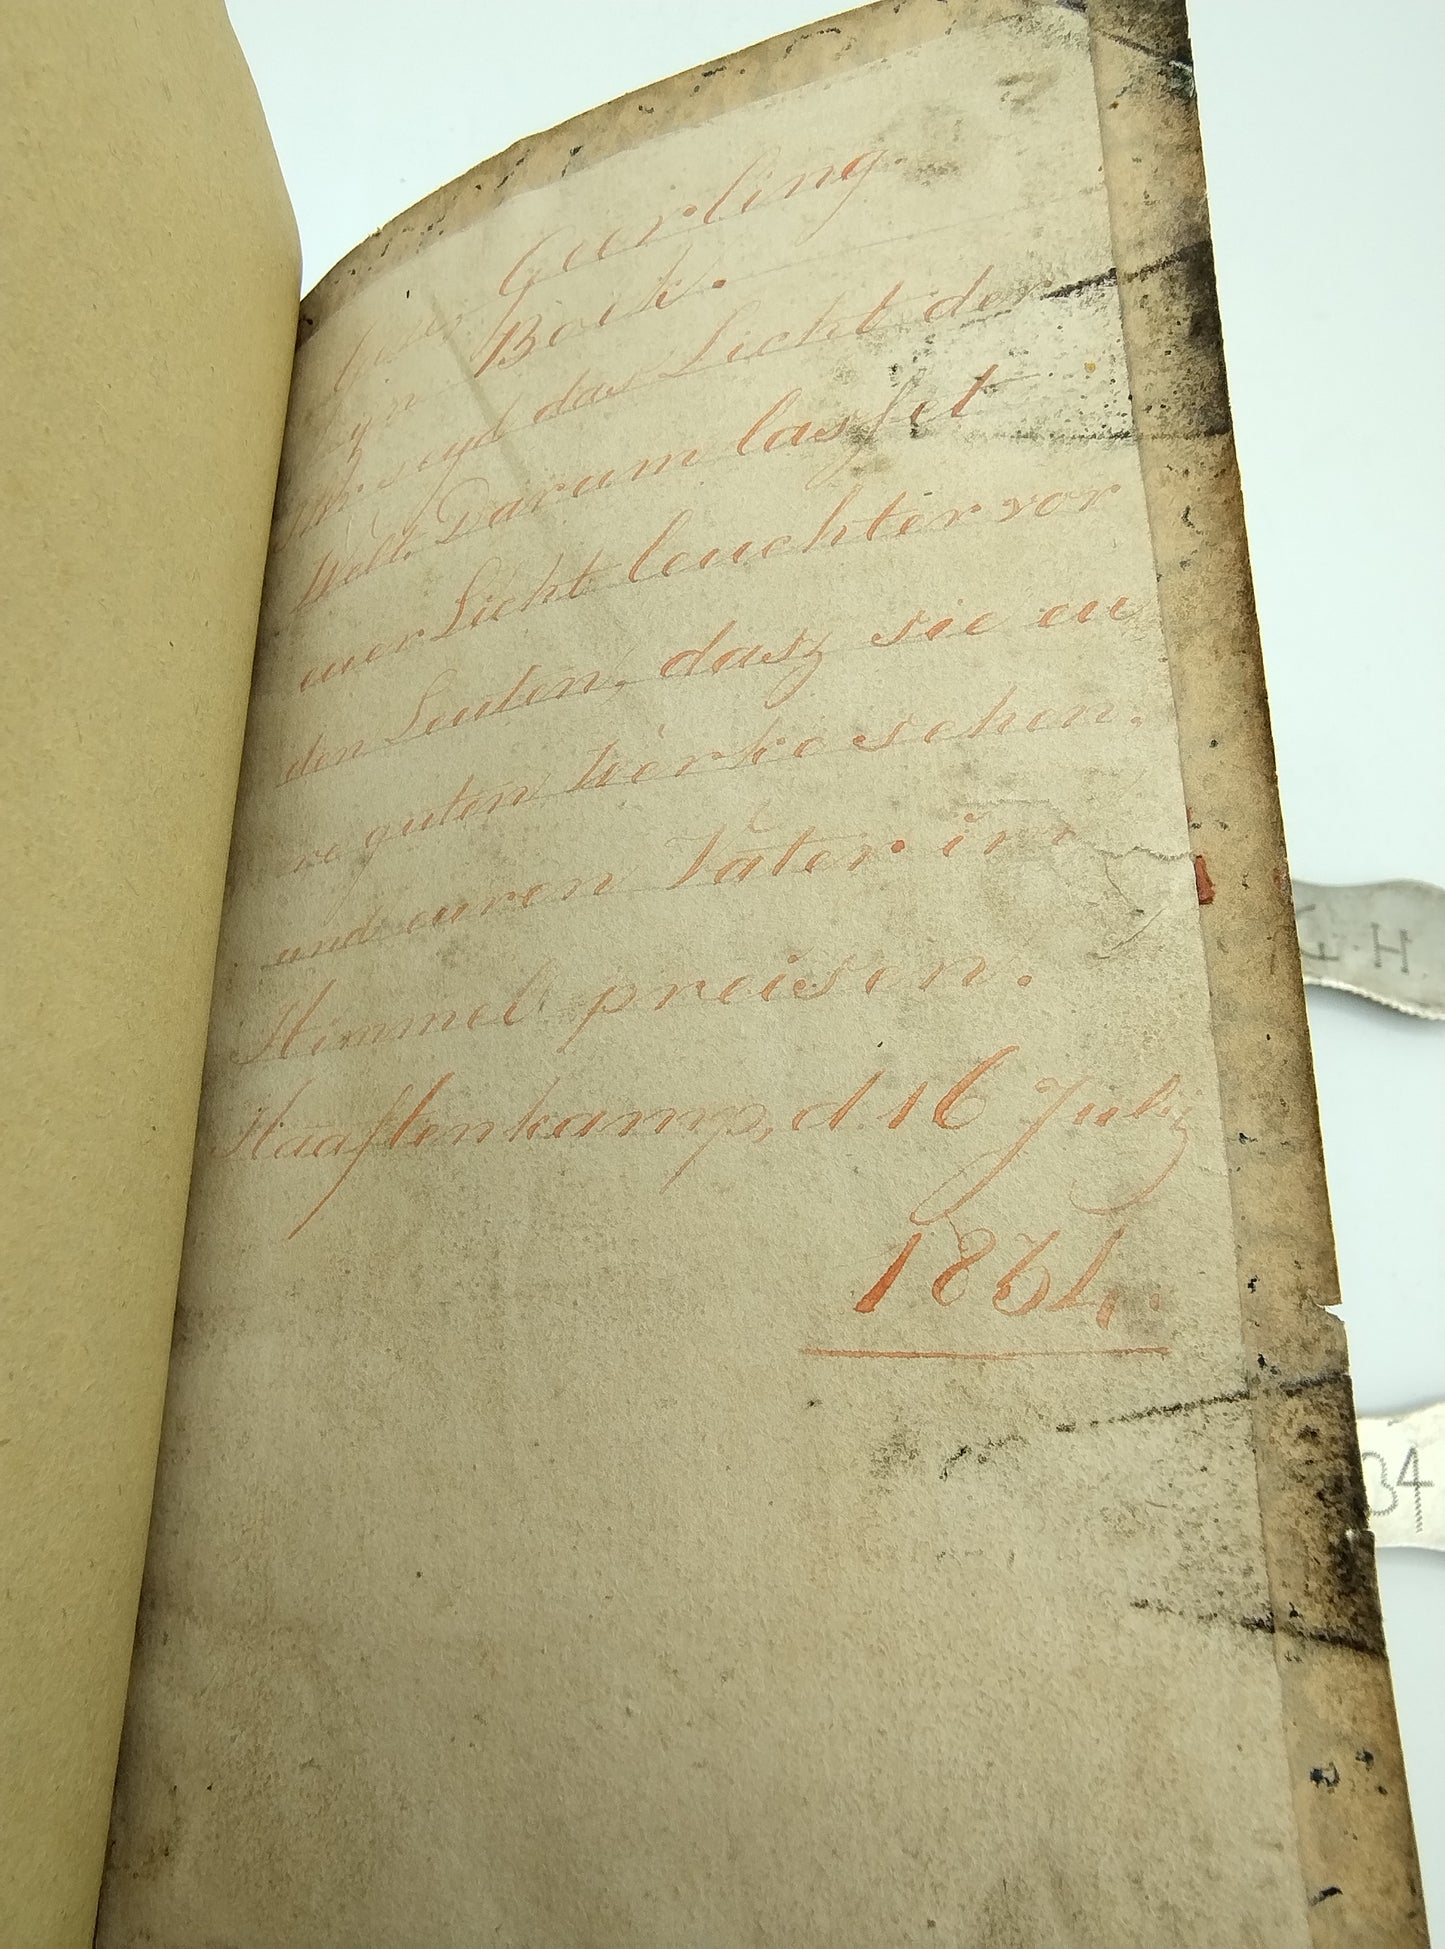 Geerling.
Zyn Boek.
Ihr seyd das Licht der
Welt. Darum lasset
euer Licht leuchten vor
den Leuten, dasz sie eu
re guten Werke sehen,
und euren Vater im
Himmel preisen.
Haaftenkamp, d. 16 July
1834.
H
34